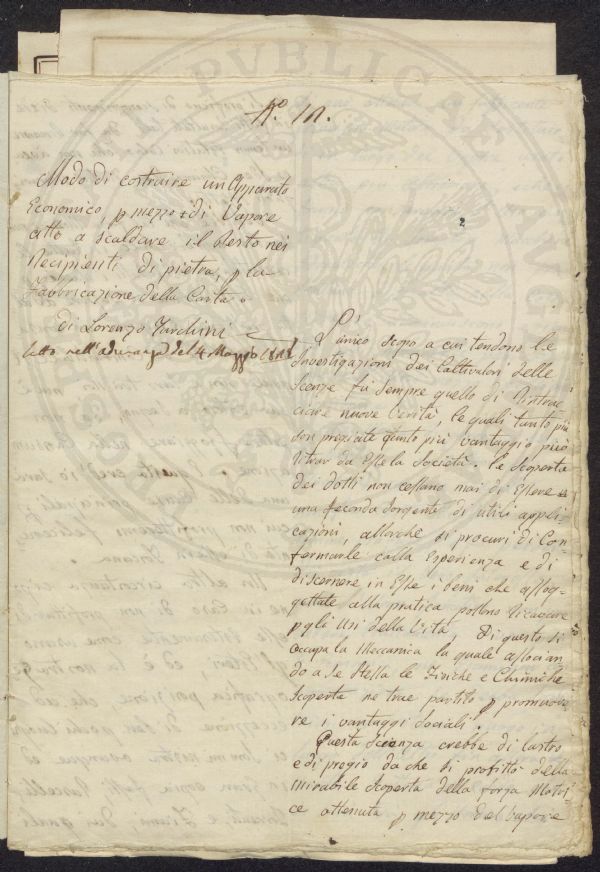 N.º 10.
Modo di costruire un Apparato
Economico, p mezzo di Vapore
atto a scaldare il Pesto nei
Recipienti di pietra, p la
Fabbricazione della Carta.
di Lorenzo
Letto nell'adunanza del 4 Maggio
L'unico scopo a cui tendono le
Investigazioni dei Cultivatori delle
Scenze fù sempre quello di Rintrac
ciare nuove verità, le quali tanto più
son pregiate quanto più vantaggio può
Ritrar da Esse la Società. Le Scoperte
dei dotti non cessano mai di Essere
una feconda Sorgente di utili appli-
cazioni, allorchè si procuri di Con
fermarle colla Esperienza e di
discernere in Esse i beni che assog-
gettate alla pratica possono Ricavare
p gli Usi della Vita, di questo si
occupa la Meccanica la quale associan
do a se stessa le Fisiche e Chimiche
Scoperte ne trae partito p promuove-
re i vantaggi sociali.
Questa Scienza crebbe di lustro
e di pregio da che si profittò della
mirabile Scoperta della Forza Motri-
ce ottenuta p mezzo del Vapore
PUBLICAE
AVG